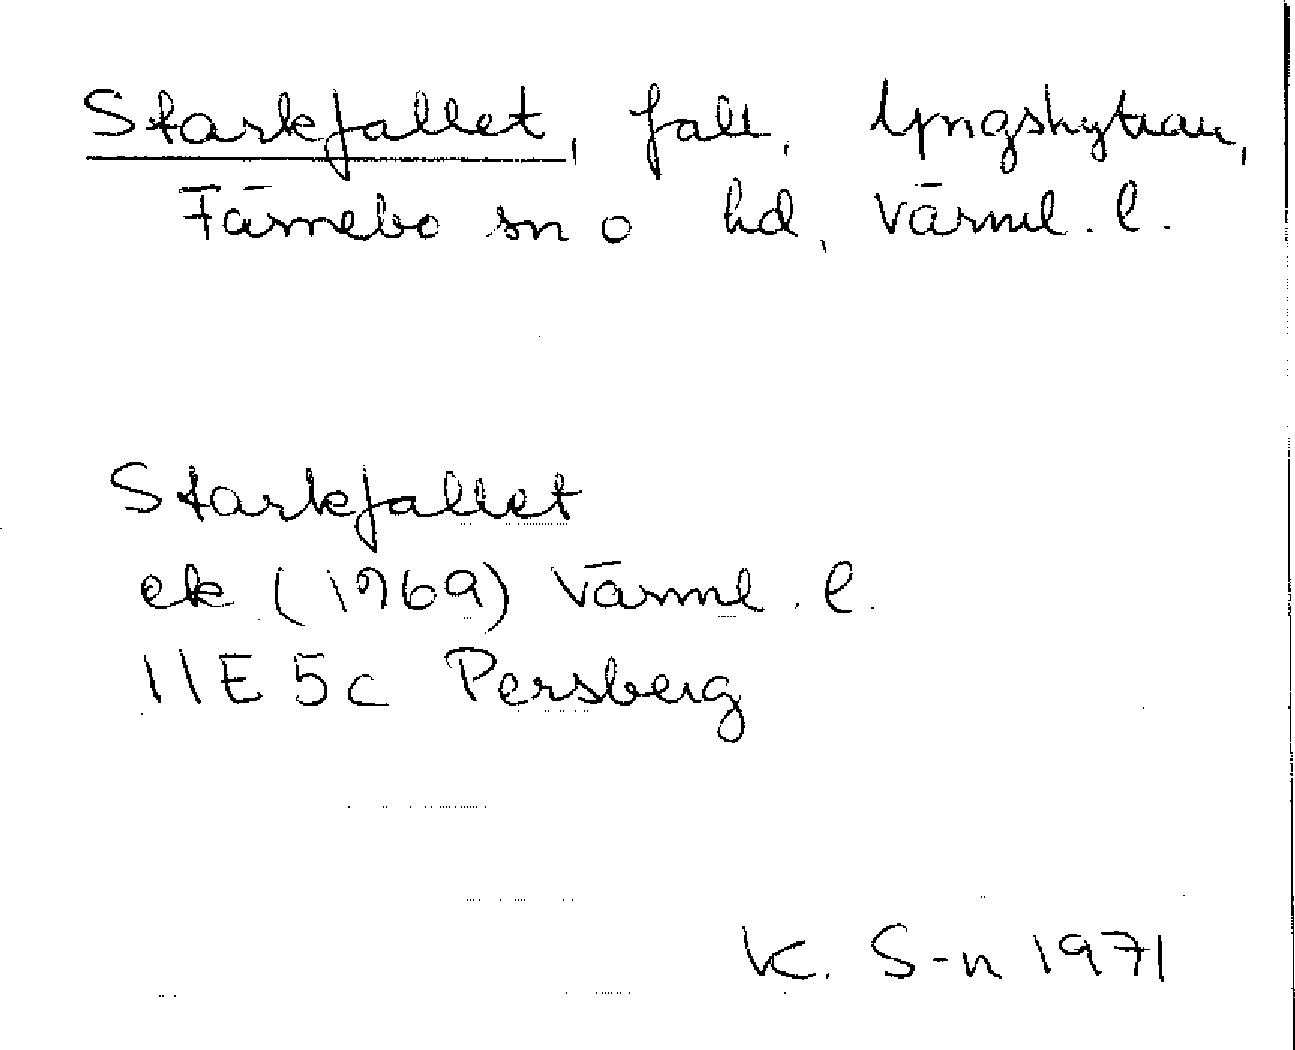 Starkfallet, fall, Yngshyttan,
Färnebo sn o hd, Värml. l.
Starkfallet
ek (1969) Värml. l.
11E 5c Persberg
K. S-n 1971